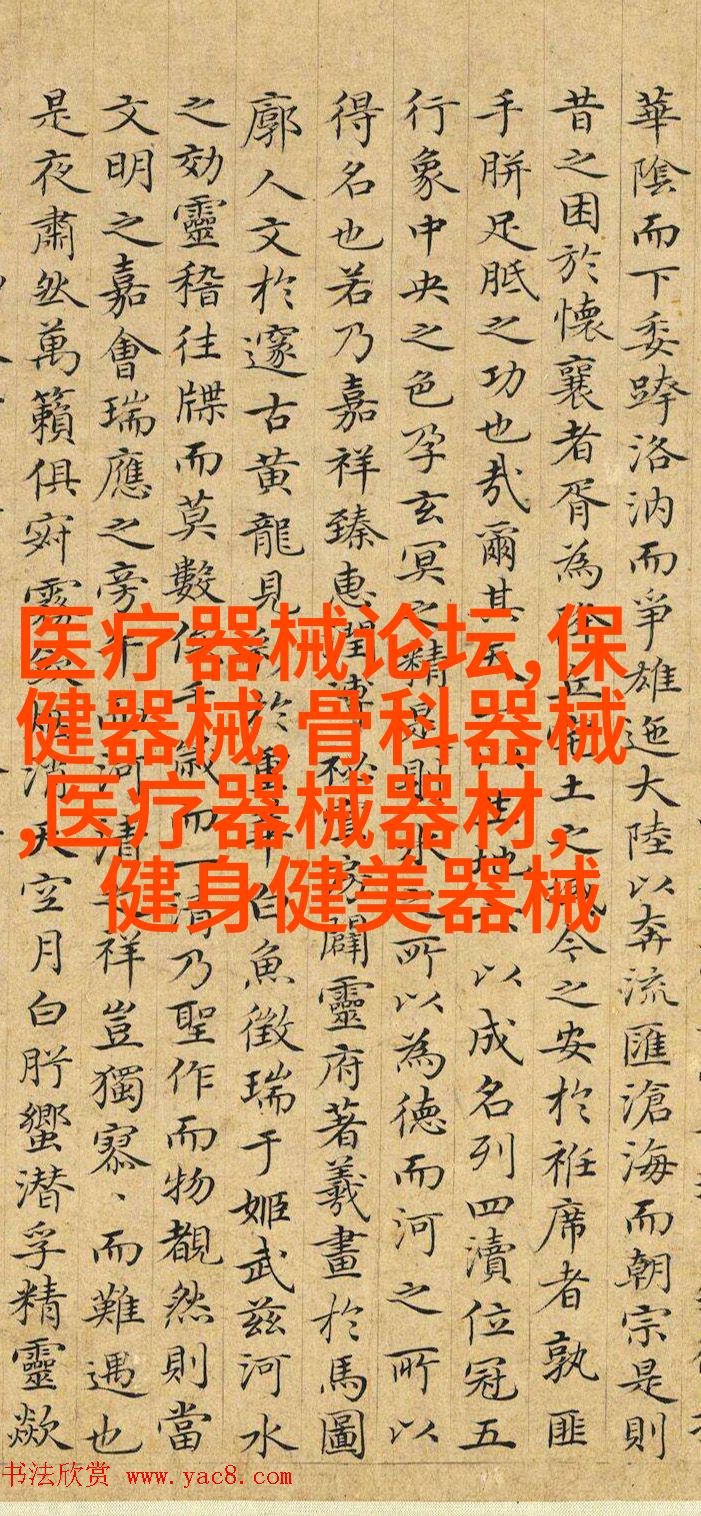 華陰而下委跨洛汭而爭雄迤大陸以奔流匯滄海而朝宗是則
昔之困於懷襄者胥為降丘宅土之域今之安於袵席者孰匪
手胼足胝之功也哉爾其天一以生地六以成名列四瀆位冠五
行象中央之色孕玄冥之精是則水之所以為德而河之所以
得名也若乃嘉祥臻惠潤溥秘闢靈府著羲畫於馬圖
廓人文於邃古黃龍見於重華白魚徵瑞于姬武茲河水
之効靈稽往牒而莫數俟千歲而一清乃聖作而物覩然則當
文明之嘉會瑞應之旁午而河清之祥豈獨寥、而難遇也
是夜肅然萬籟俱寂霧斂烟消天空月白肸蠁潜孚精靈歘
医疗器械论坛,保
健器械,骨科器械
,医疗器械器材,
健身健美器械
书法欣赏 www.yac8.com